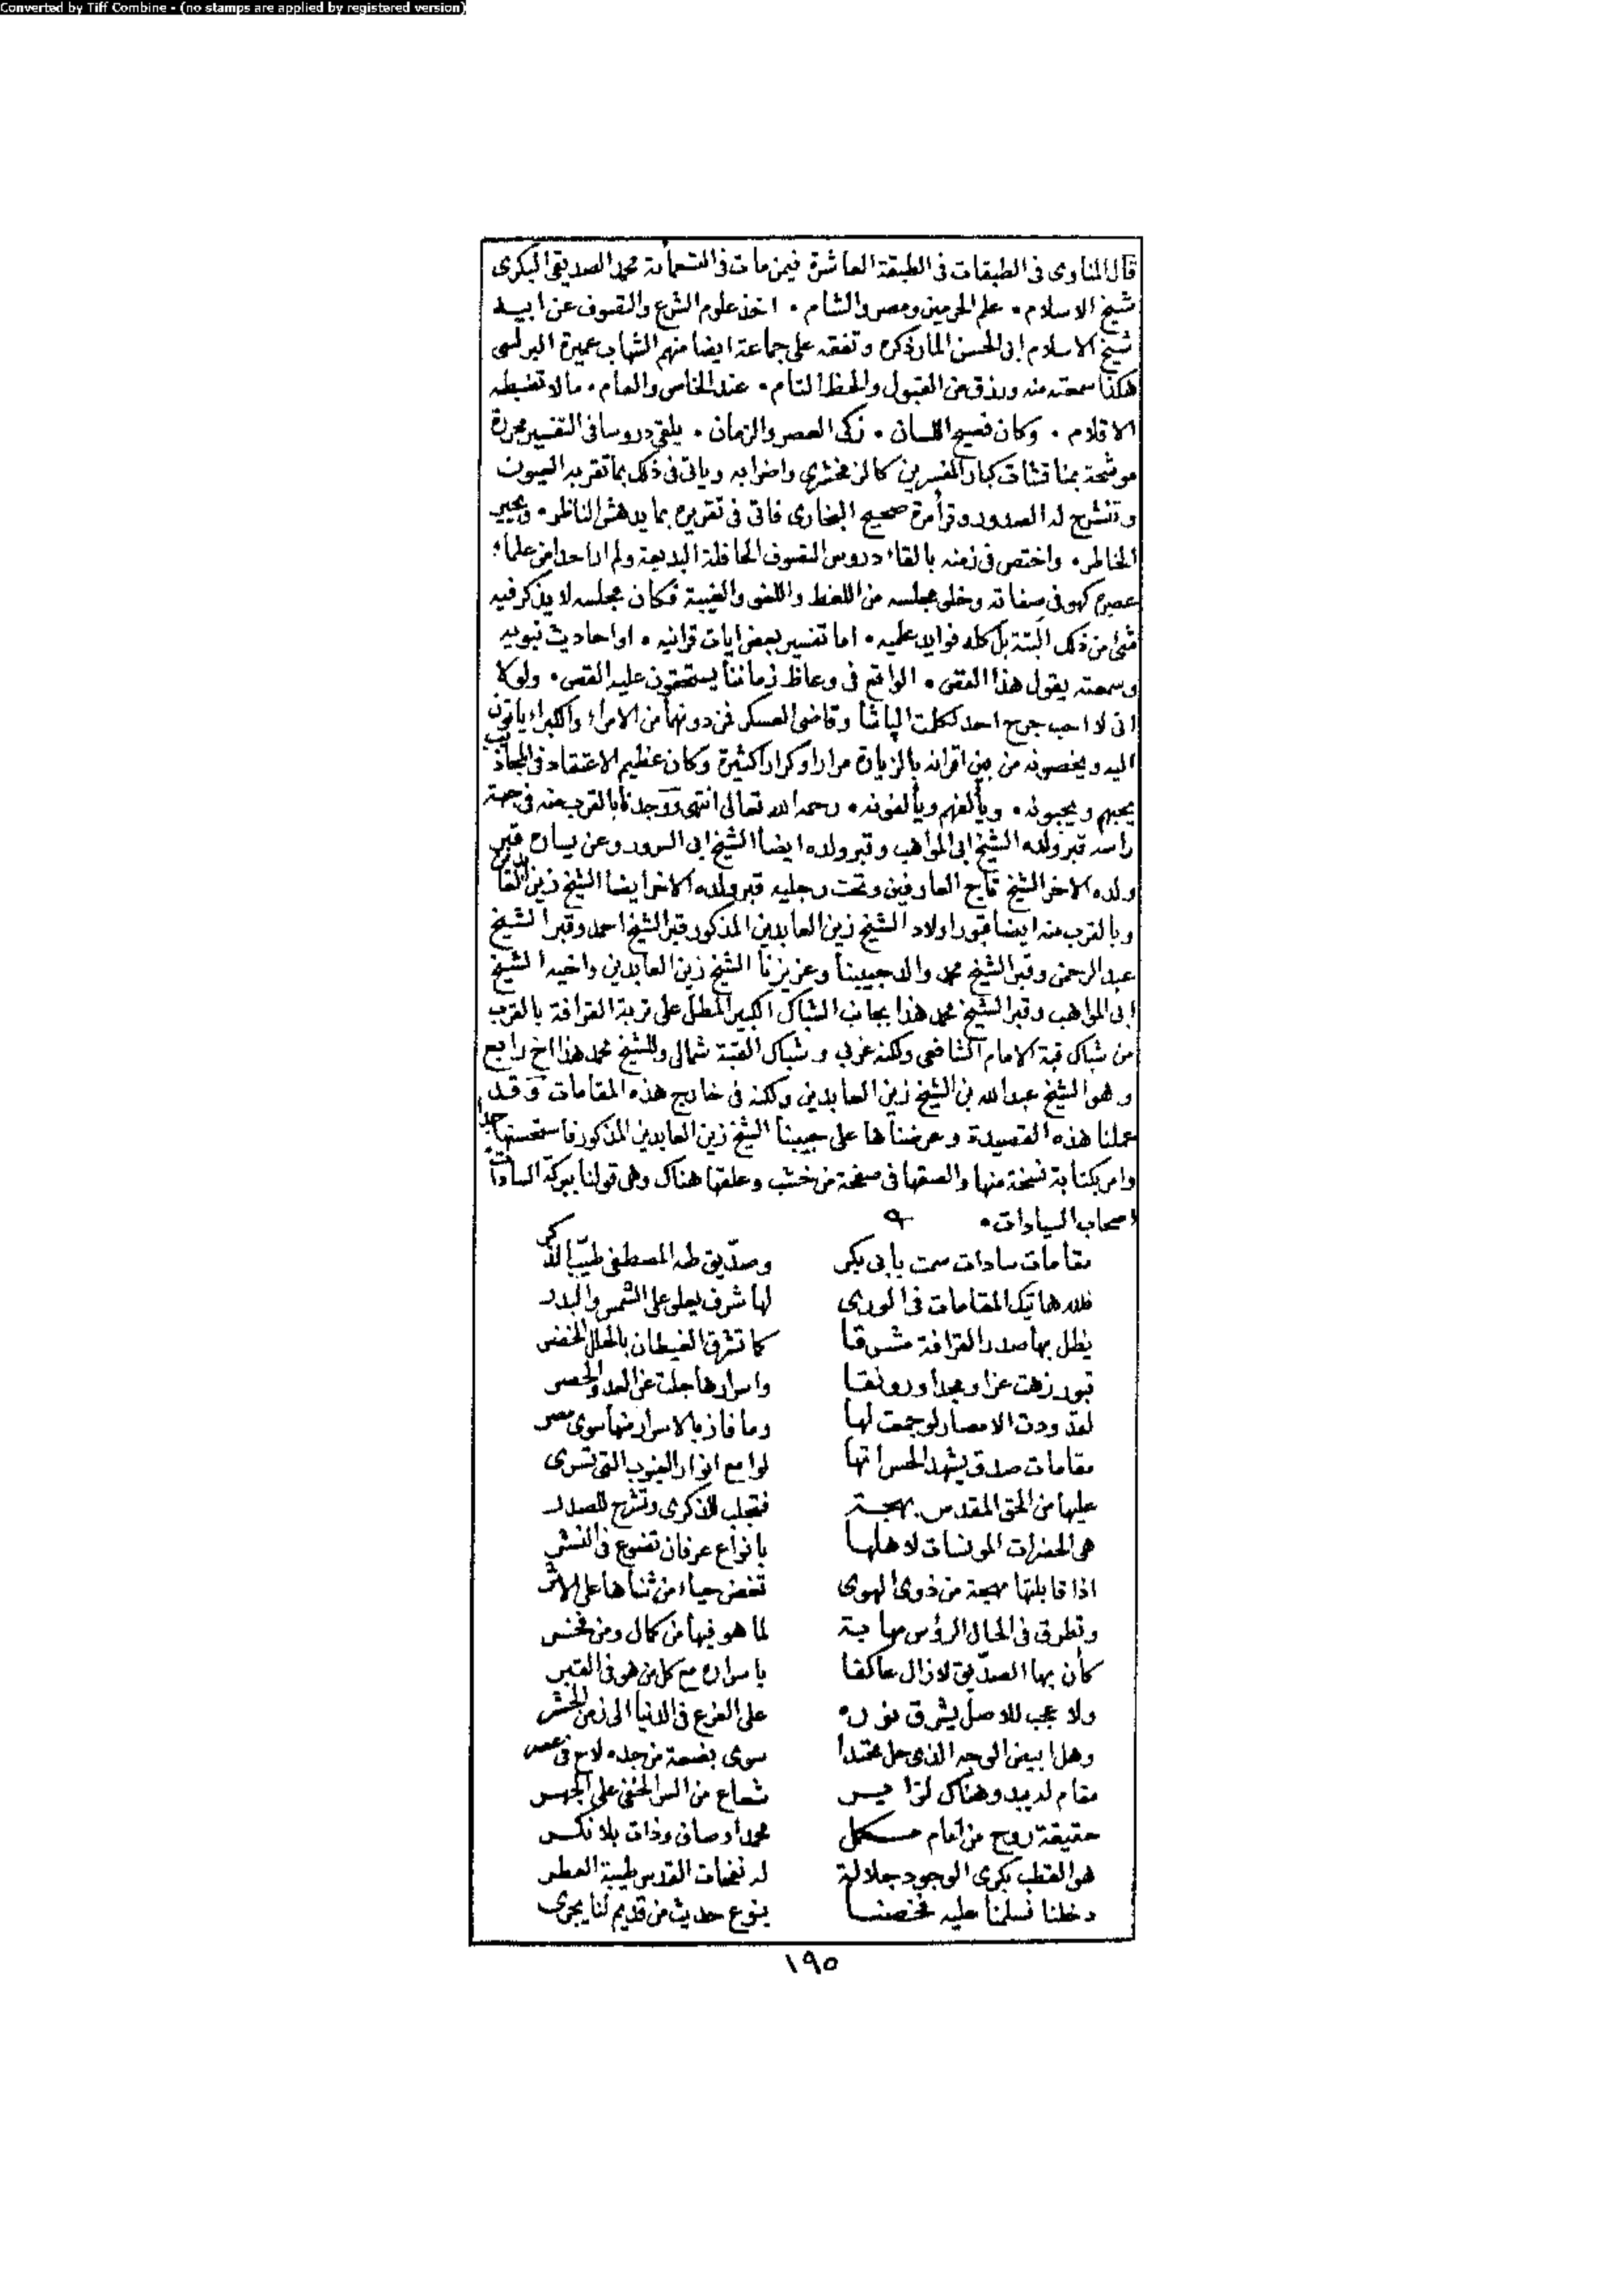 Converted by Tiff Combine - (no stamps are applied by registered version)
قال المناوى فى الطبقات فى الطبقة العاشرة فيمن مات فى التسعمأة محمد الصديقى البكرى
شيخ الاسلام • علم الحرمين ومصر والشام • اخذ علوم الشرع والتصوف عن ابيه
شيخ الاسلام ابى الحسن المار ذكره وتفقه على جماعة ايضا منهم الشهاب عميرة البرلسى
هكذا سمعته منه ورزق من القبول والحظ التام • عند الخاص والعام • مالا تضبطه
الاقلام • وكان فصيح اللسان • زكى العصر والزمان • يلقى دروسا فى التفسير محررة
موشحة بمناقشات كبار المفسرين كالزمخشرى واضرابه وياتى فى ذلك بما تقر به العيون
وتنشرح له الصدور وقرأ مرة صحيح البخارى فاتى فى تقريره بما يدهش الناظر • ويحير
الخاطر • واختص فى زمنه بالقاء دروس التصوف الحافلة البديعة ولم ار احدا من علماء
عصره كهو فى صفاته وخلى مجلسه من اللغط واللغو والغيبة فكان مجلسه لا يذكر فيه
شئ من ذلك البتة بل كله فوايد علميه • اما تفسير بعض ايات قرانيه • او احاديث نبويه
وسمعته يقول هذا القصى • الواقع فى وعاظ زماننا يستحقون عليه القصى • ولولا
انى لا احب جرح احد لكلمت الباشا وقاضى العسكر فمن دونهما من الامراء والكبراء ياتون
اليه ويخصونه من بين اقرانه بالزيارة مرارا وكرارا كثيرة وكان عظيم الاعتقاد فى المجاذيب
يحبهم ويحبونه • ويألفهم ويألفونه • رحمه الله تعالى انتهى ووجدنا بالقرب منه فى جهة
راسه قبر ولده الشيخ ابى المواهب وقبر ولده ايضا الشيخ ابى السرور وعن يساره قبر
ولده الاخر الشيخ تاج العارفين وتحت رجليه قبر ولده الاخر ايضا الشيخ زين العابدين
وبالقرب منه ايضا قبور اولاد الشيخ زين العابدين المذكور قبر الشيخ احمد وقبر الشيخ
عبد الرحمن وقبر الشيخ محمد والد حبيبنا وعزيزنا الشيخ زين العابدين واخيه الشيخ
ابى المواهب وقبر الشيخ محمد هذا بجانب الشباك الكبير المطل على تربة القرافة بالقرب
من شباك قبة الامام الشافعى ولكنه غربى وشباك القبة شمالى وللشيخ محمد هذا اخ رابع
وهو الشيخ عبد الله بن الشيخ زين العابدين ولكنه فى خارج هذه المقامات وقد
عملنا هذه القصيدة وعرضناها على حبيبنا الشيخ زين العابدين المذكور فاستحسنها جدا
وامر بكتابة نسخة منها والصقها فى صفحة من خشب وعلقها هناك وهى قولنا ببركة السادات
اصحاب السيادات •
مقامات سادات سمت بابى بكر وصديق طه المصطفى طيب الذكر
فلله هاتيك المقامات فى الورى لها شرف يعلو على الشمس والبدر
يظل بها صدر القرافة مشرقا كما تشرق الغيطان بالحلل الخضر
قبور زهت عزا ومجدا ورونقا واسرارها جلت عن العد والحصر
لقد ودت الامصار لو جمعت لها وما فاز بالاسرار منها سوى مصر
مقامات صدق يشهد الحس انها لوامع انوار الغيوب التى تسرى
عليها من الحق المقدس بهجة فتجلب للذكرى وتشرح للصدر
هى الحضرات المونسات لاهلها بانواع عرفان تضوع فى النشر
اذا قابلتها مهجة من ذوى الهوى تغض حياء من ثناها على الاثر
وتطرق فى الحال الرؤس مهابة لما هو فيها من كمال ومن فخر
كأن بها الصديق لا زال عاكفا باسراره مع كل من هو فى القبر
ولا عجب للاصل يشرق نوره على الفرع فى الدنيا الى زمن الحشر
وهل ابيض الوجه الذى جل محتدا سوى بضعة من جده لاح فى عصر
مقام لديه يبدو هناك لزاير شعاع من السر الخفى على الجهر
حقيقة روح من امام مكمل محمد اوصاف وذات بلا نكر
هو القطب بكرى الوجود جلالة له نفحات القدس طيبة العطر
دخلنا فسلمنا عليه فخصنا بنوع حديث من قديم لنا يجرى
١٩٥